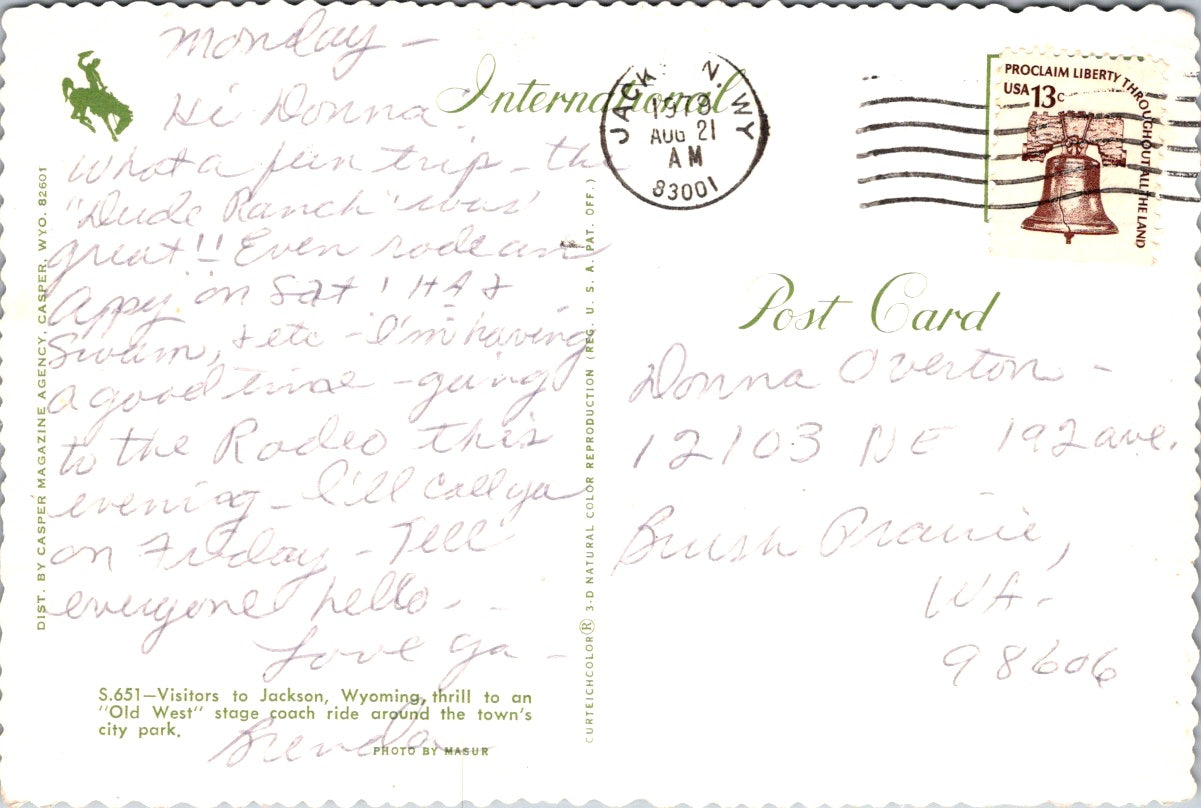 Monday –
Hi Donna!
What a fun trip – the
"Dude Ranch" was
great!! Even rode an
Appy on Sat! HA &
Swam, & etc – I'm having
a good time – going
to the Rodeo this
evening – I'll call ya
on Friday – Tell
everyone hello – –
Love ya –
Brenda
S.651—Visitors to Jackson, Wyoming, thrill to an
"Old West" stage coach ride around the town's
city park.
PHOTO BY MASUR
DIST. BY CASPER MAGAZINE AGENCY, CASPER, WYO. 82601
CURTEICHCOLOR® 3-D NATURAL COLOR REPRODUCTION (REG. U. S. A. PAT. OFF.)
International
JACK N. WY
1978
AUG 21
AM
83001
PROCLAIM LIBERTY THROUGHOUT ALL THE LAND
USA 13c
Post Card
Donna Overton –
12103 NE 192 ave.
Brush Prairie,
WA –
98606